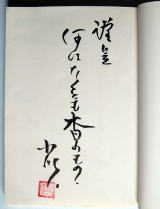 謹呈
何はなくとも香のもの